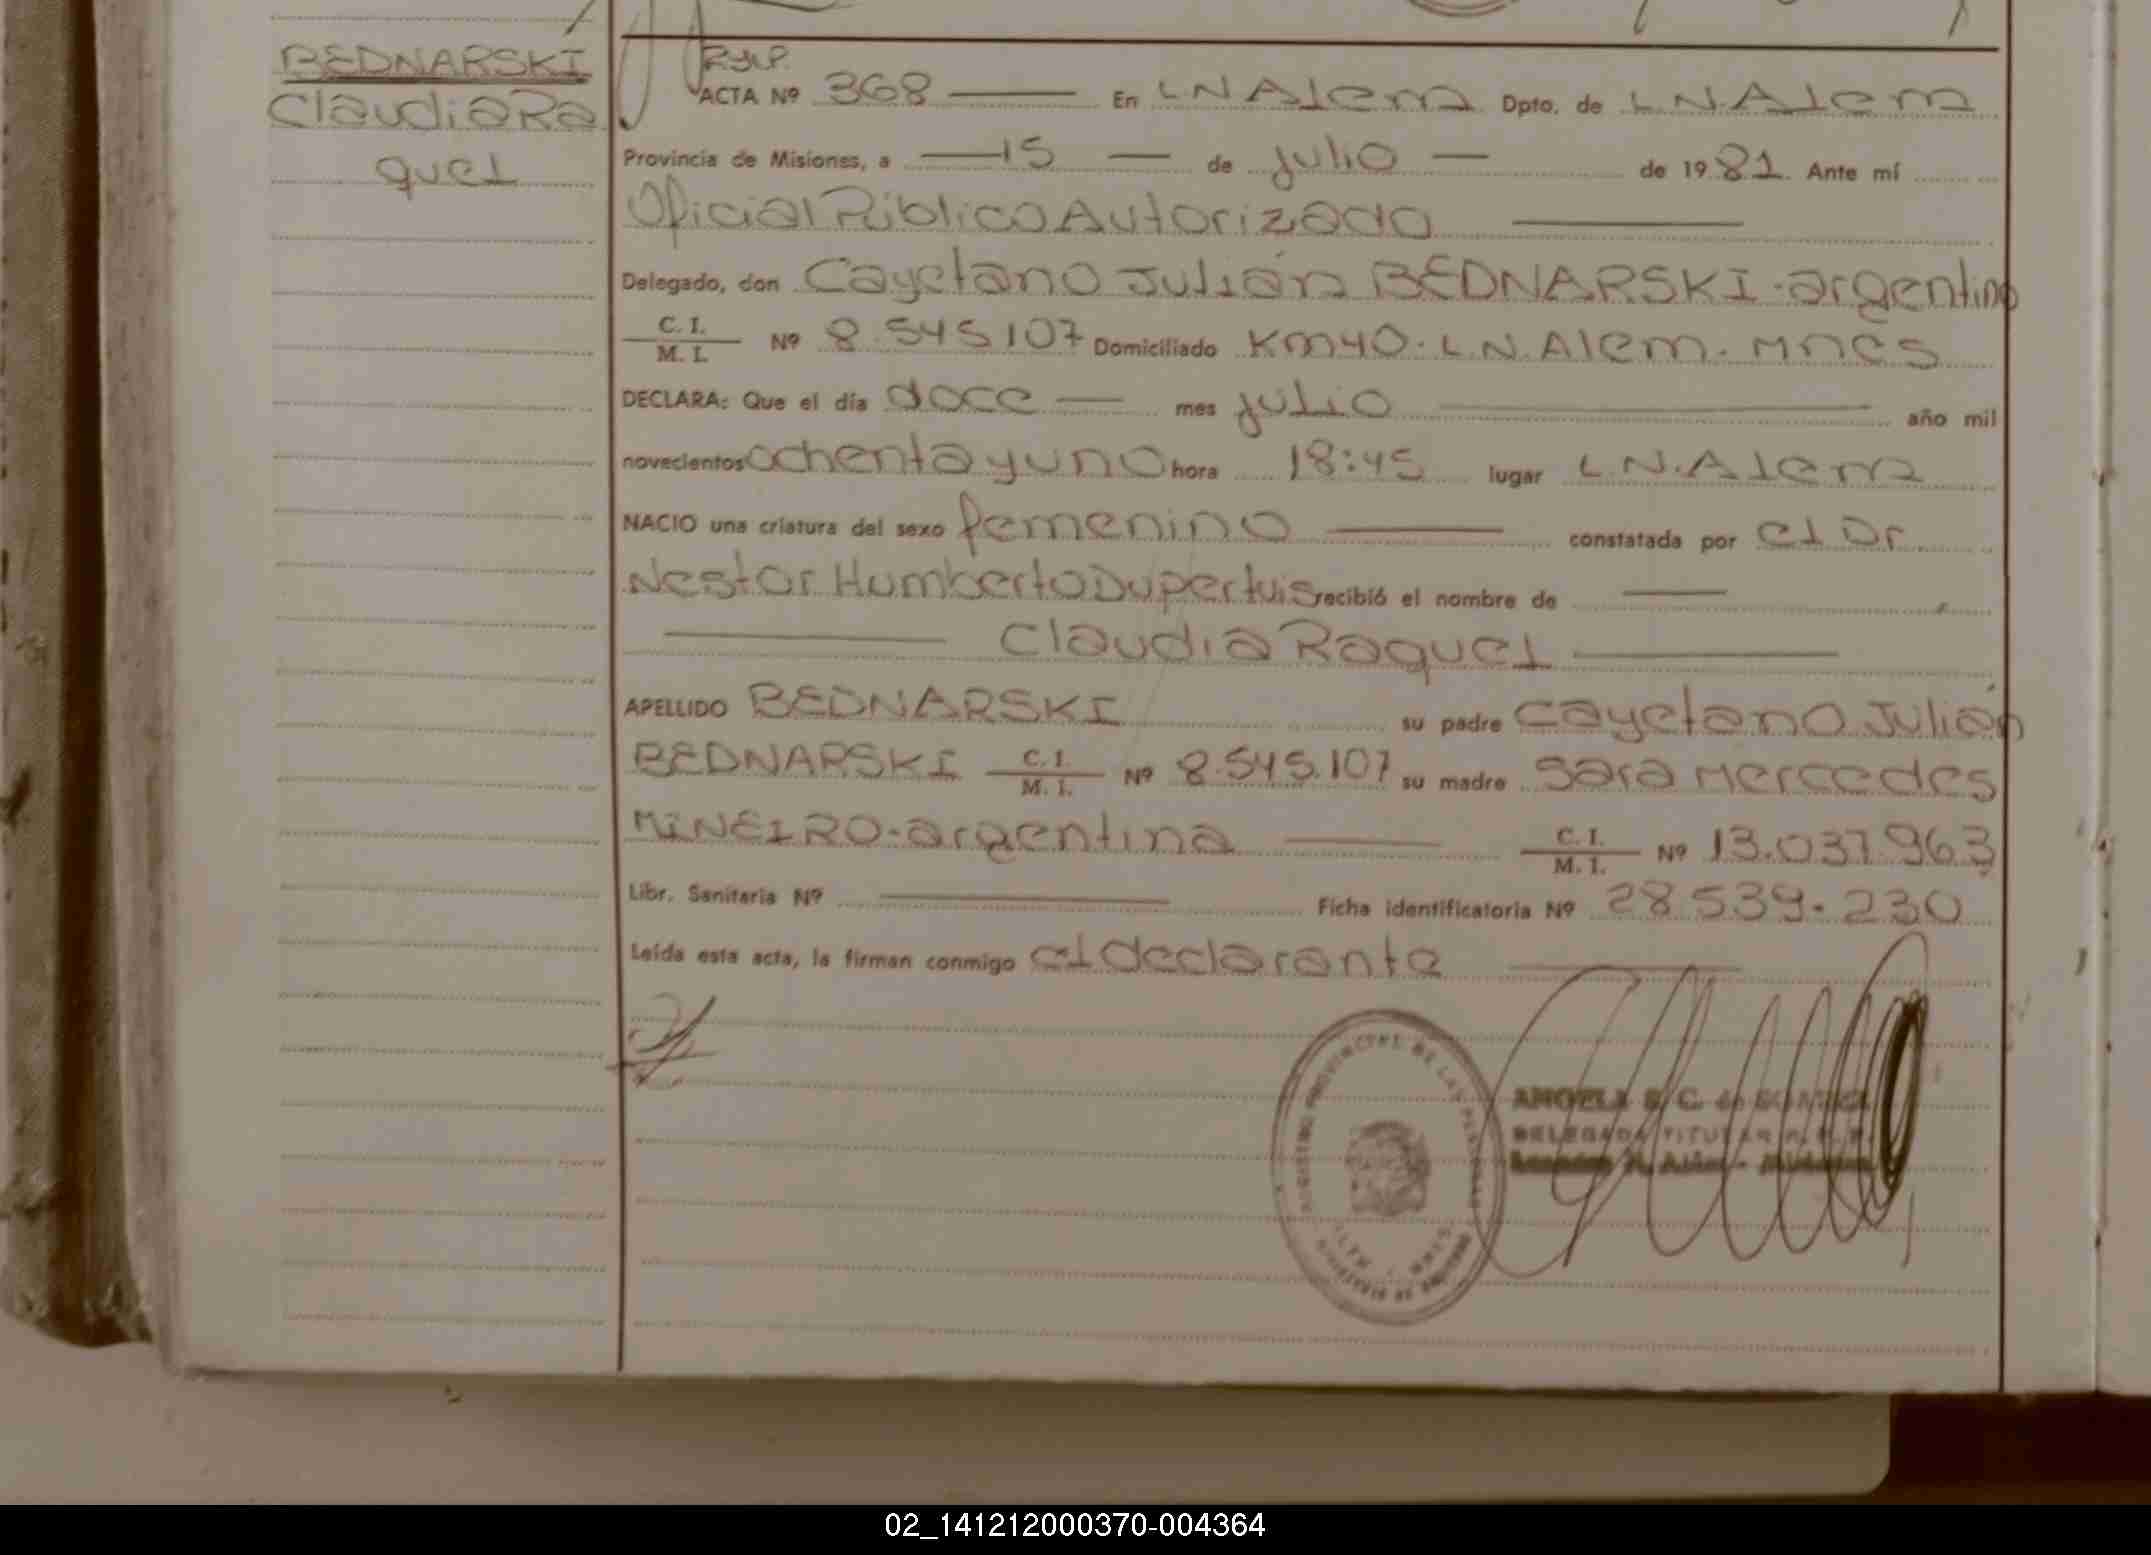 BEDNARSKI
Claudia Ra
quel
ACTA Nº 368 En L N Alem Dpto. de L. N. Alem
Provincia de Misiones, a 15 de julio de 1981. Ante mí
Oficial Público Autorizado
Delegado, don Cayetano Julián BEDNARSKI - argentino
C. I. / M. I. Nº 8.545.107 Domiciliado Km 40. L N. Alem. Mnes
DECLARA: Que el día doce mes julio año mil
novecientos ochenta y uno hora 18:45 lugar L N. Alem
NACIO una criatura del sexo femenino constatada por el Dr
Nestor Humberto Dupertuis recibió el nombre de
Claudia Raquel
APELLIDO BEDNARSKI su padre Cayetano Julián
BEDNARSKI C. I. / M. I. Nº 8.545.107 su madre Sara Mercedes
MINEIRO - argentina C. I. / M. I. Nº 13.037.963
Libr. Sanitaria Nº Ficha identificatoria Nº 28.539.230
Leída esta acta, la firman conmigo el declarante
REGISTRO PROVINCIAL DE LAS PERSONAS
ANGELA S. C. de
DELEGADA TITULAR R. P. P.
Leandro N. Alem - Misiones
02_141212000370-004364